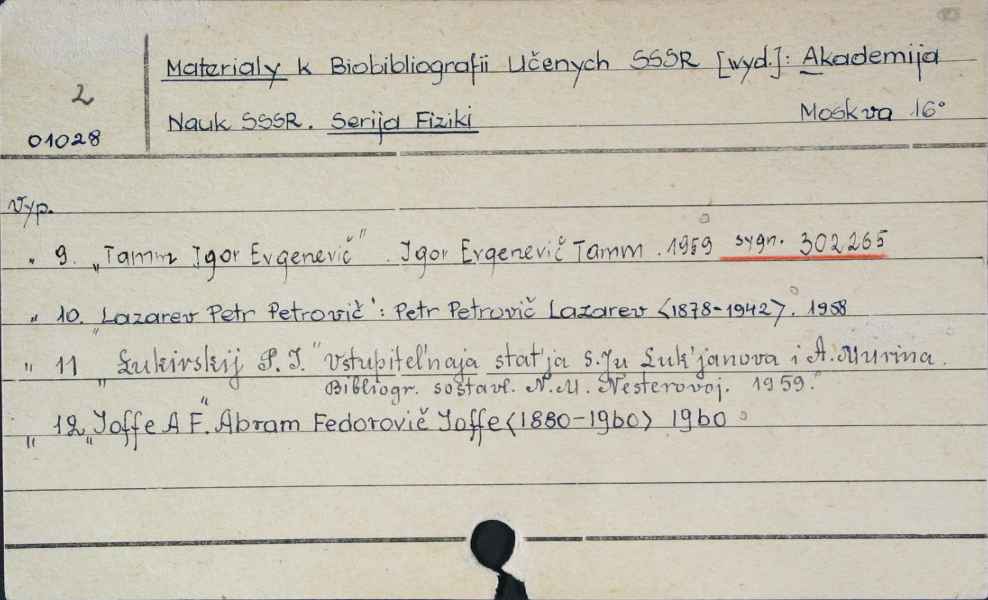 Materialy k Biobibliografii Učenych SSSR [wyd.]: Akademija
2
Nauk SSSR. Serija Fiziki Moskva 16°
01028
Vyp.
" 9. „Tamm Igor Evgenevič". Igor Evgenevič Tamm. 1959 sygn. 302265
" 10. „Lazarev Petr Petrovič": Petr Petrovič Lazarev <1878-1942>. 1958
" 11 „Łukirskij P. I." Vstupitel'naja stat'ja S.Ju Łuk'janova i A. Murina.
Bibliogr. sostavl. N.M. Nesterovoj. 1959.
" 12 „Joffe A F." Abram Fedorovič Joffe <1880-1960> 1960